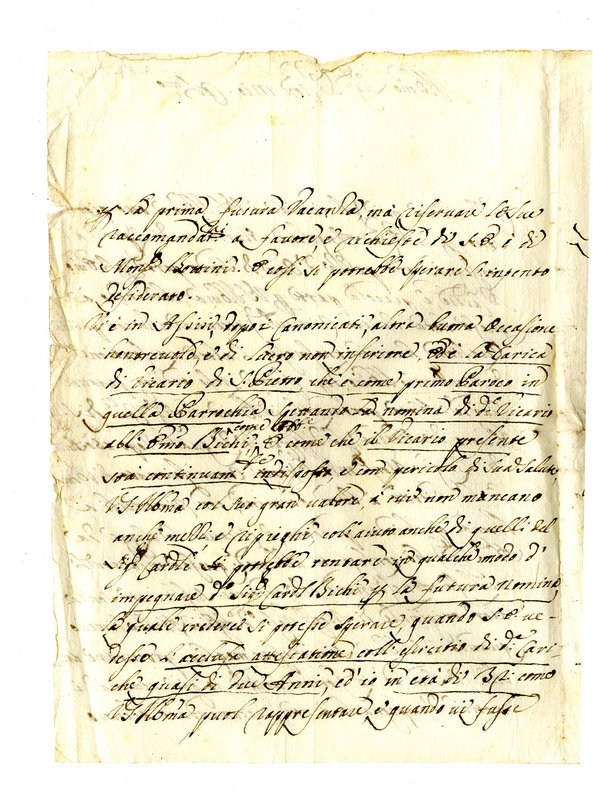 la prima futura Vacanza, mà riservare le Sue
raccomandat.i a favore, e richieste di S. E. i di
Mons.r E così si potrebbe sperare l'intento
desiderato.
Vi è in Assisi, dopo i Canonicati, altra buona Occasione
honorevole e di lucro non inferiore, ed è la Carica
di Vicario di S. Pietro, che è come primo Paroco in
quella Parrochia spettando la nomina di d.o Vicario
all' Em.o Bichi, come Abb.e E come che il Vicario presente
stia continuam.te indisposto, e con pericolo di Sua Salute,
V.S. Ill.ma col suo gran valore, a cui non mancano
anche mezzi, e ripieghi coll'aiuto anche di quelli del
Sig. Card.le potrebbe tentare in qualche modo d'
impegnare d.o Sig. Card.l Bichi p. la futura nomina,
la quale crederei si potesse sperare quando S. E. ve-
desse l'acclusa attestatione coll'esercitio di d.e Cari-
che quasi di due Anni, ed io in età di 32: come
V.S. Ill.ma puol rappresentare e quando vi fusse